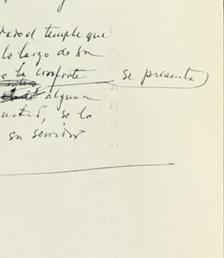 dado el temple que
lo largo de su
o la conforte se presenta
alguna
se lo
su servidor